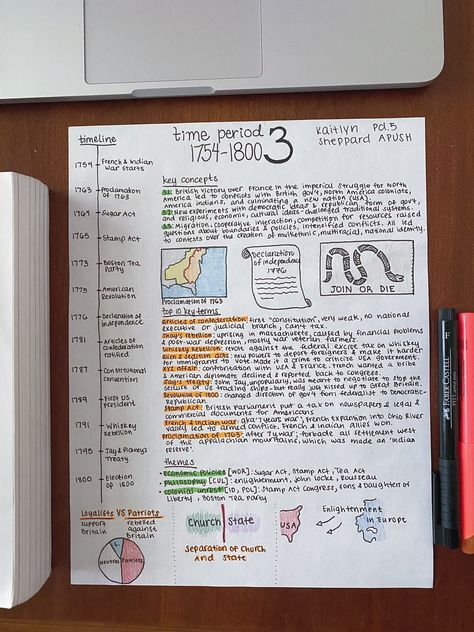 timeline
time period
1754-1800 3
Kaitlyn Pd.5
Sheppard APUSH
1754 French & Indian War starts
1763 Proclamation of 1763
1764 Sugar Act
1765 Stamp Act
1773 Boston Tea Party
1775 American Revolution
1776 Declaration of Independence
1781 Articles of confederation ratified
1787 Constitutional Convention
1789 First US President
1791 Whiskey Rebellion
1795 Jay & Pinckney's Treaty
1800 Election of 1800
key concepts
3.1: British victory over France in the imperial struggle for North
America led to conflicts with British gov't, North America colonists,
America Indians, and culminating a new nation (USA).
3.2: New experiments with democratic ideas & republican form of gov't,
and religious, economic, cultural ideas - challenged traditional systems.
3.3: Migration, cooperative interaction, competition for resources raised
questions about boundaries & policies, intensified conflicts. All led
to contests over the creation of multiethnic, multiracial, national identity.
Proclamation of 1763
Declaration
of independence
1776
JOIN OR DIE
top 10 key terms
articles of confederation: first "constitution", very weak, no national
executive or judicial branch, can't tax.
Shay's rebellion: uprising in massachusetts, caused by financial problems
& post-war depression, mostly war veteran farmers.
Whiskey Rebellion: revolt against the federal excise tax on whiskey
alien & sedition acts: new powers to deport foreigners & made it harder
for immigrants to vote. Made it a crime to criticize USA government.
XYZ affair: confrontation with USA & France. French wanted a bribe
& American diplomats declined & reported back to congress.
Jay's treaty: John Jay, unpopularly, was meant to negotiate to stop the
seizure of US trading ships - but really just kissed up to Great Britain.
Revolution of 1800: changed direction of govt from federalist to Democratic-
Republican.
Stamp Act: British parliament put a tax on newspapers & legal &
commercial documents for Americans
French & Indian war: aka '7 years war'; French expansion into Ohio River
valley led to armed conflict. French & Indian allies won.
Proclamation of 1763: after 7y war; forbade all settlement west
of the appalachian mountains, which was made an 'indian
reserve'.
themes
• economic policies [WOR]: Sugar Act, Stamp Act, Tea Act
• philosophy [CUL]: enlightenment, john locke, Rousseau
• colonial unrest [ID, POL]: Stamp Act Congress, sons & Daughter of
Liberty, Boston Tea Party
Loyalists VS Patriots
support Britain
rebelled against Britain
Neutral
Patriots
Church State
Separation of Church
and State
USA
Enlightenment
in Europe
FABER-CASTELL